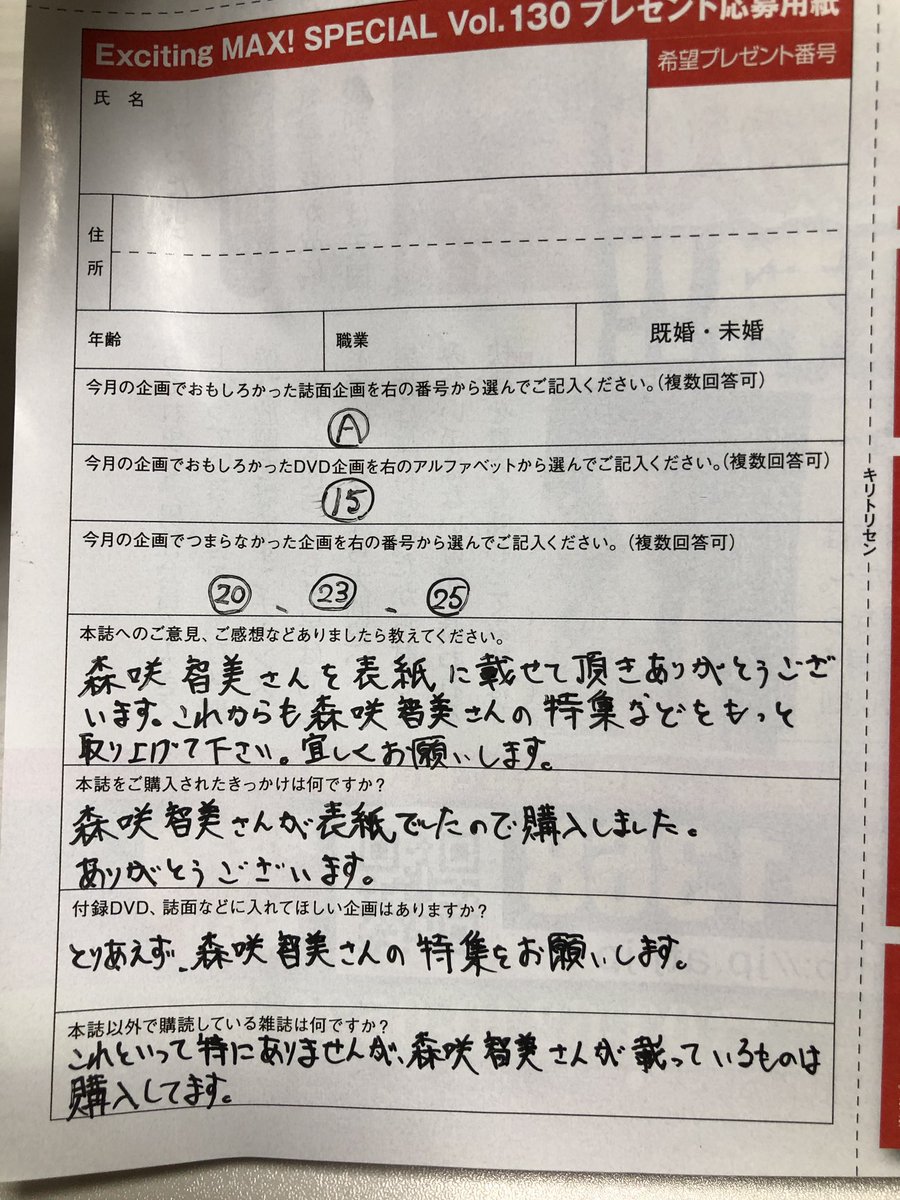 Exciting MAX! SPECIAL Vol.130 プレゼント応募用紙
希望プレゼント番号
氏 名
住
所
年齢
職業
既婚・未婚
今月の企画でおもしろかった誌面企画を右の番号から選んでご記入ください。(複数回答可)
Ⓐ
今月の企画でおもしろかったDVD企画を右のアルファベットから選んでご記入ください。(複数回答可)
⑮
今月の企画でつまらなかった企画を右の番号から選んでご記入ください。(複数回答可)
⑳、㉓、㉕
本誌へのご意見、ご感想などありましたら教えてください。
森咲智美さんを表紙に載せて頂きありがとうござ
います。これからも森咲智美さんの特集などをもっと
取り上げて下さい。宜しくお願いします。
本誌をご購入されたきっかけは何ですか?
森咲智美さんが表紙でしたので購入しました。
ありがとうございます。
付録DVD、誌面などに入れてほしい企画はありますか?
とりあえず、森咲智美さんの特集をお願いします。
本誌以外で購読している雑誌は何ですか?
これといって特にありませんが、森咲智美さんが載っているものは
購入してます。
キリトリセン